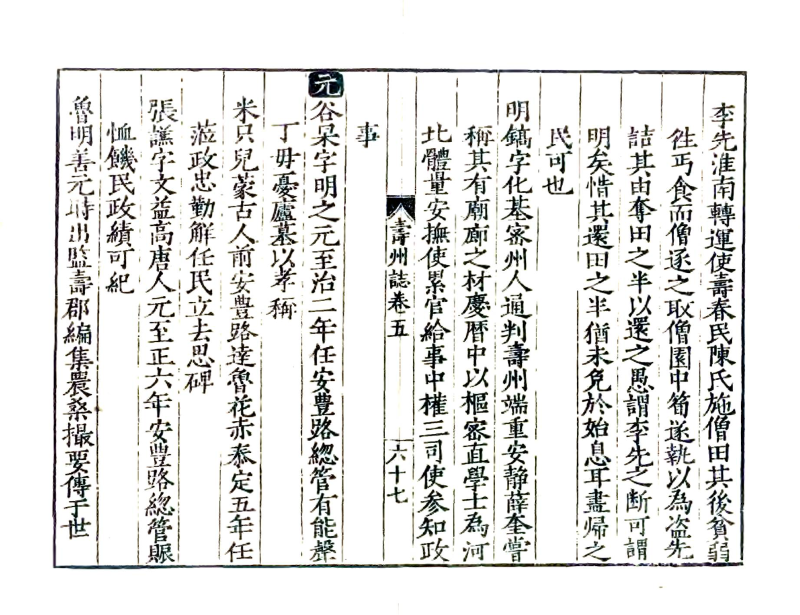 李先淮南轉運使壽春民陳氏施僧田其後貧弱
徃丐食而僧逐之取僧園中筍遂執以為盜先
詰其由奪田之半以還之愚謂李先之斷可謂
明矣惜其還田之半猶未免於姑息耳盡歸之
民可也
明鎬字化基密州人通判壽州端重安静薛奎嘗
稱其有廟廊之材慶曆中以樞密直學士為河
北體量安撫使累官給事中權三司使參知政
事
壽州誌卷五
六十七
元
谷杲字明之元至治二年任安豊路緫管有能聲
丁毋憂廬墓以孝稱
米只兒蒙古人前安豊路達魯花赤泰定五年任
蒞政忠勤解任民立去思碑
張謙字文益高唐人元至正六年安豊路緫管賑
恤饑民政績可紀
魯明善元時出監壽郡編集農桑撮要傳于世